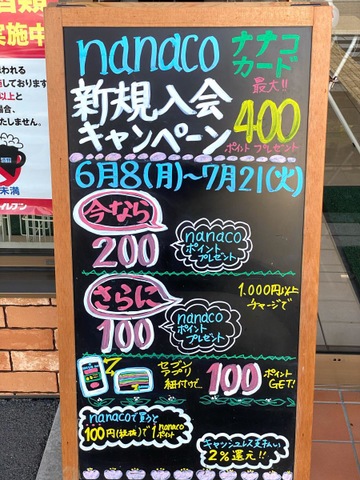 類
実施中
われる
しております
以上と
場合、
いたします。
未満
イレブン
nanaco ナナコカード
新規入会
キャンペーン
最大!!
400
ポイントプレゼント
6月8(月)~7月21(火)
今なら
200
nanaco
ポイント
プレゼント
さらに
100
nanaco
ポイント
プレゼント
1.000円以上
チャージで
セブン
アプリ
紐付けで
100
ポイント
GET!
nanacoで買うと
100円(税抜)で1nanaco
ポイント
キャッシュレス支払い
2%還元!!